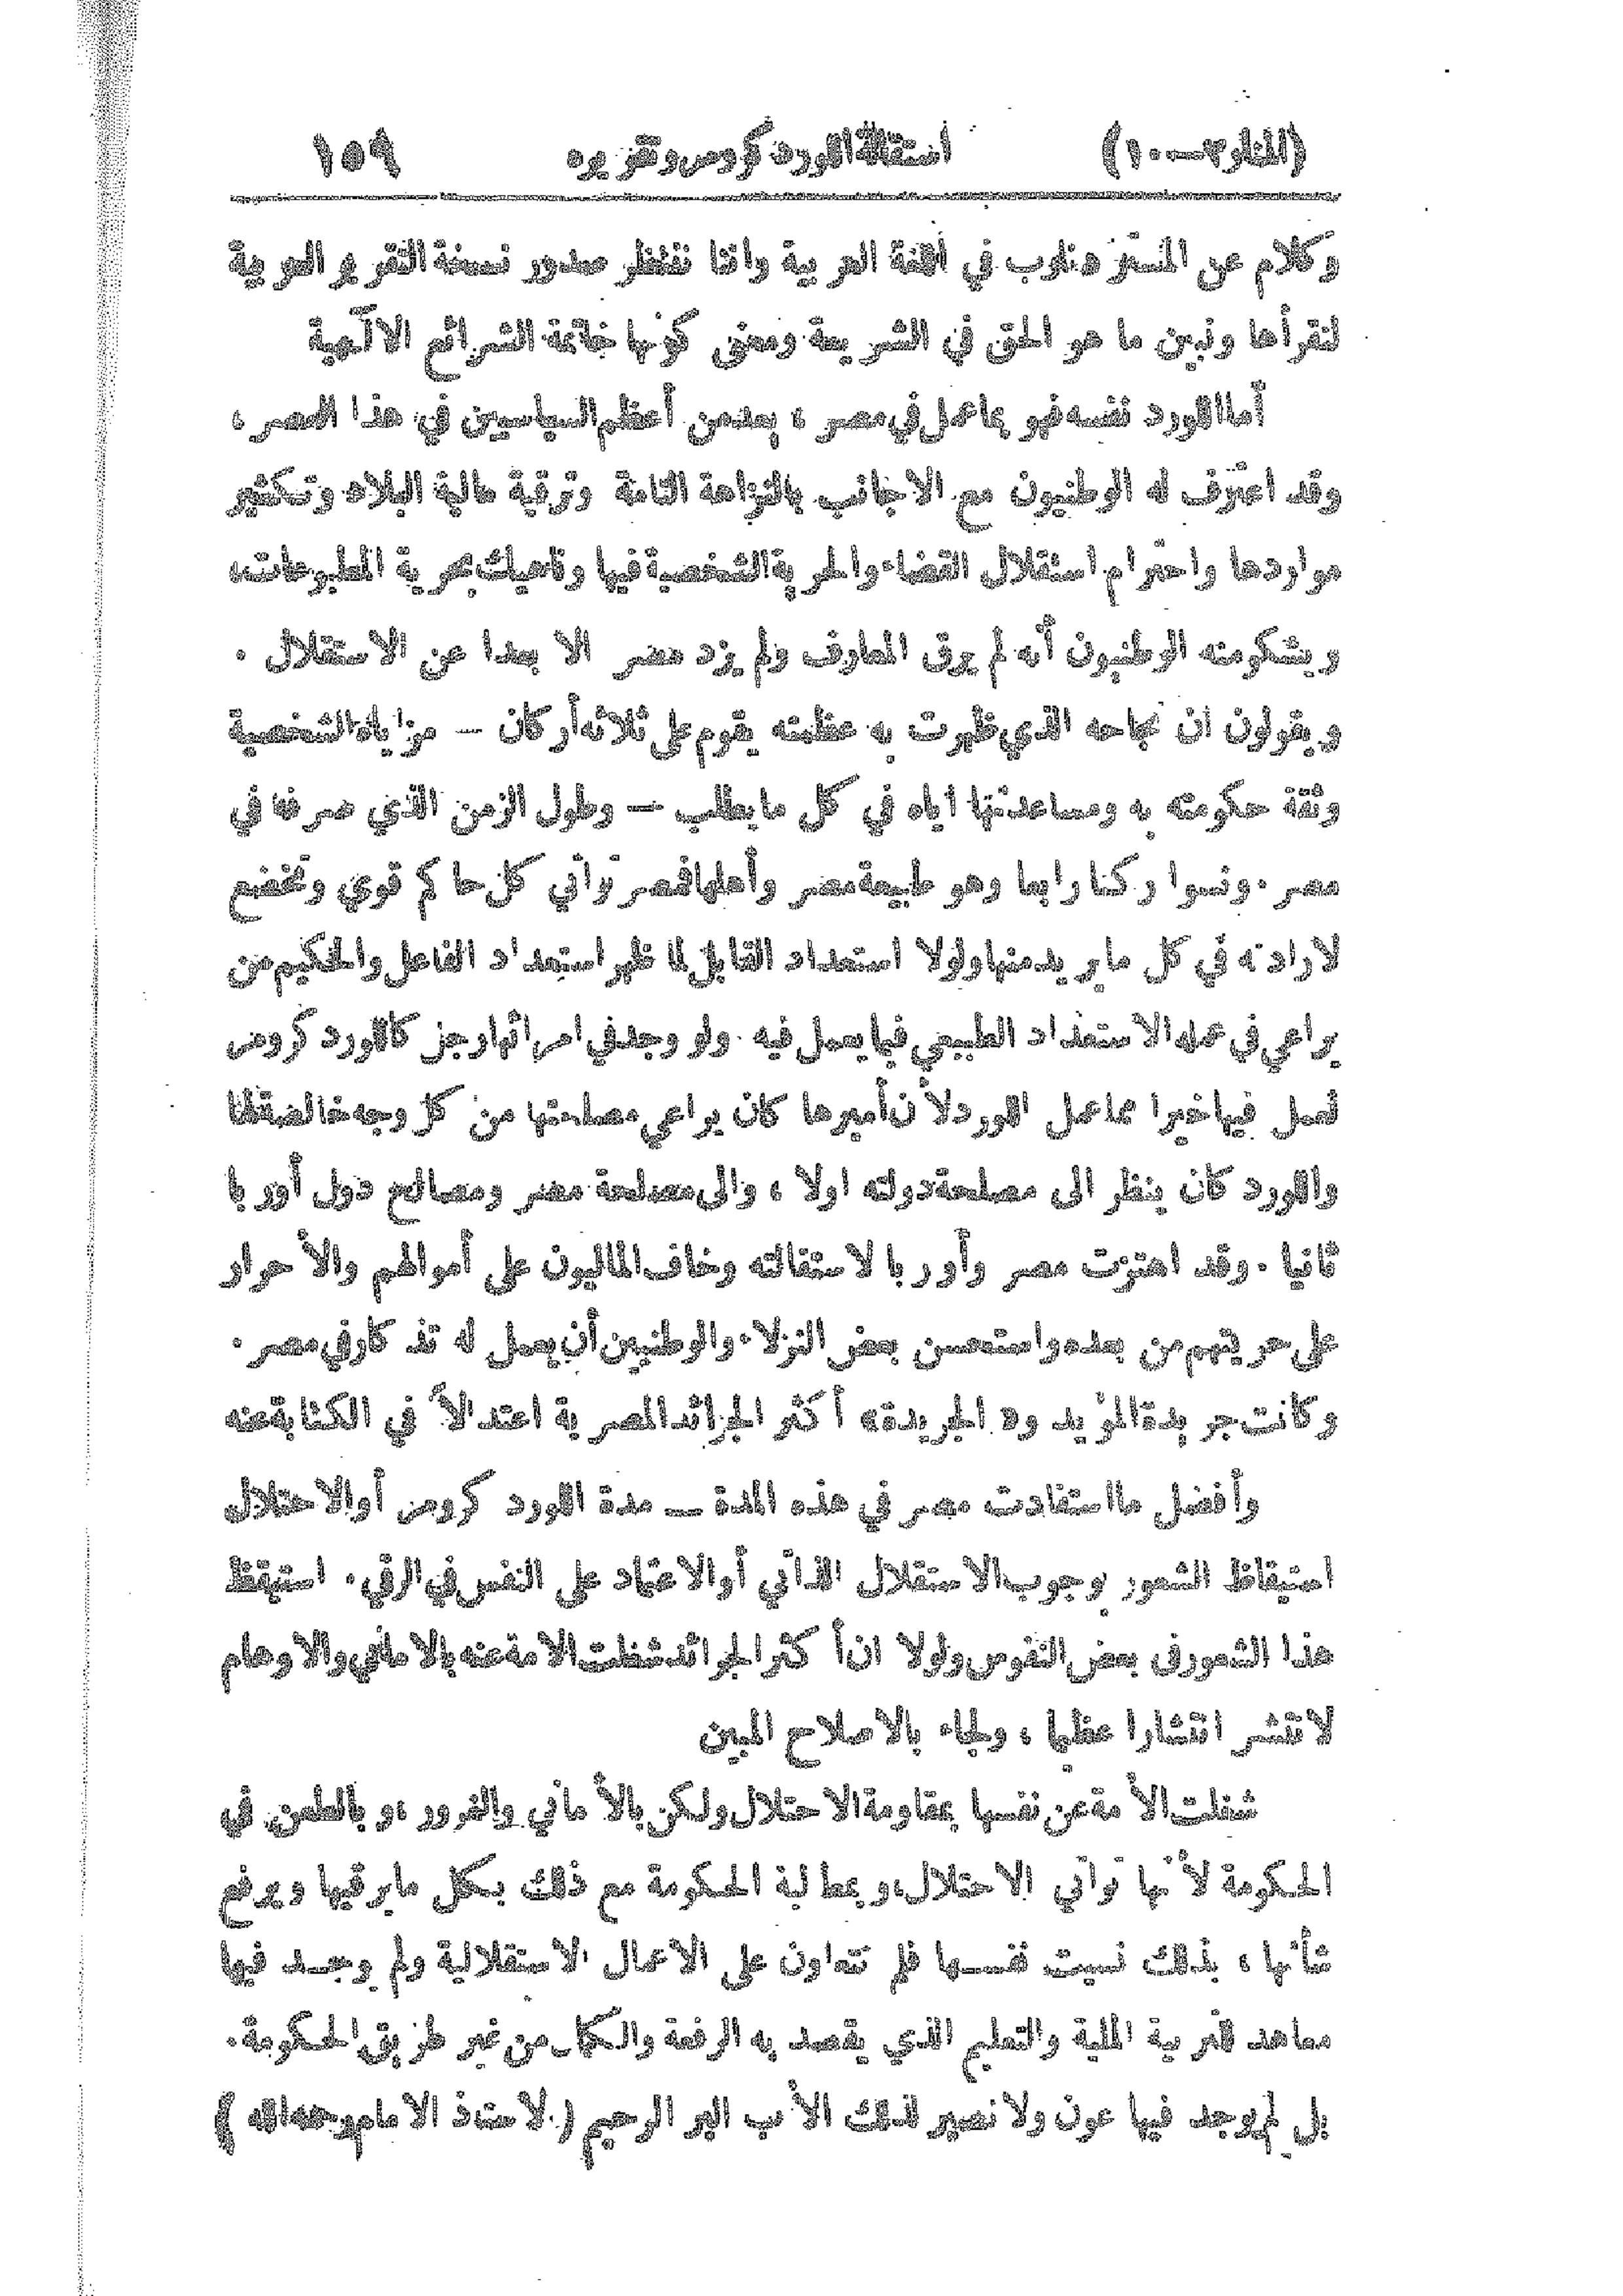 (المنار ٢ — ١٠) استقالة اللورد كرومر وتقريره ١٥٩
وكلام عن المستر دنلوب في اللغة العربية واننا ننتظر صدور نسخة التقرير العربية
لنقرأها ونبين ما هو الحق في الشريعة ومعنى كونها خاتمة الشرائع الالٓهية
أما اللورد نفسه فهو بما عمل في مصر ، يعد من أعظم السياسيين في هذا العصر ،
وقد اعترف له الوطنيون مع الاجانب بالنزاهة التامة وترقية مالية البلاد وتكثير
مواردها واحترام استقلال القضاء والحرية الشخصية فيها وناهيك بحرية المطبوعات،
ويشكو منه الوطنيون أنه لم يرق المعارف ولم يزد مصر الا بعدا عن الاستقلال .
ويقولون ان نجاحه الذي ظهرت به عظمته يقوم على ثلاثة أركان — مزاياه الشخصية
وثقة حكومته به ومساعدتها اياه في كل ما يطلب — وطول الزمن الذي صرفه في
مصر . ونسوا ركنا رابعا وهو طبيعة مصر وأهلها فمصر تواتي كل حاكم قوي وتخضع
لارادته في كل ما يريد منها ولولا استعداد القابل لما ظهر استعداد الفاعل والحكيم من
يراعي في عمله الاستعداد الطبيعي فيما يعمل فيه . ولو وجد في امرائها رجز كاللورد كرومر
لعمل فيها خيرا مما عمل اللورد لأن أميرها كان يراعي مصلحتها من كل وجه خالصة لها
واللورد كان ينظر الى مصلحة دولته اولا ، والى مصلحة مصر ومصالح دول أوربا
ثانيا . وقد اهتزت مصر وأوربا لاستقالته وخاف الماليون على أموالهم والأحرار
على حريتهم من بعده واستحسن بعض النزلاء والوطنيين أن يعمل له تذكار في مصر .
وكانت جريدة المؤيد و« الجريدة » أكثر الجرائد المصرية اعتدالاً في الكتابة عنه
وأفضل ما استفادت مصر في هذه المدة — مدة اللورد كرومر أو الاحتلال
استيقاظ الشعور بوجوب الاستقلال الذاتي أو الاعتماد على النفس في الرقي . استيقظ
هذا الشعور في بعض النفوس ولولا ان أكثر الجرائد شغلت الامة عنه بالاماني والاوهام
لانتشر انتشارا عظيما ، ولجاء بالاصلاح المبين
شغلت الأمة عن نفسها بمقاومة الاحتلال ولكن بالأماني والغرور ، وبالطعن في
الحكومة لأنها تواتي الاحتلال ، وبمطالبة الحكومة مع ذلك بكل ما يرقيها ويرفع
شأنها ، بذلك نسيت نفسها فلم تتعاون على الاعمال الاستقلالية ولم يوجد فيها
معاهد للتربية الملية والتعليم الذي يقصد به الرفعة والكمال من غير طريق الحكومة .
بل لم يوجد فيها عون ولا نصير لذلك الأب البر الرحيم (الاستاذ الامام رحمه الله)